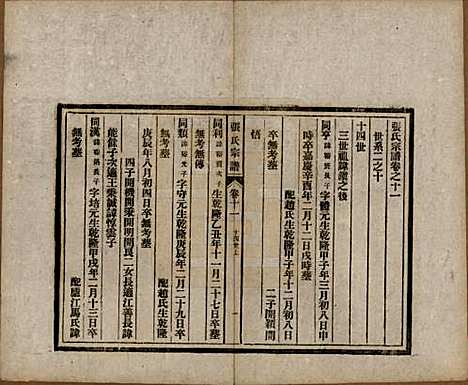 張氏宗譜卷之十一
世系二之十
十四世
三世祖諱謙之後
同亨 字體元生乾隆甲子年三月初八日申
時卒嘉慶辛酉年二月十二日戌時墓
配趙氏生乾隆甲子年十二月初八日
卒無考墓 二子開穎開
悟
張氏宗譜 卷十一 十四世上 一
同利 生乾隆乙丑年十一月二十七日卒墓
無考無傳
同類 字守元生乾隆庚辰年二月二十九日卒
無考墓 配趙氏生乾隆
庚辰年八月初四日卒無考墓
四子開機開秉開明開艮二女長適江善長諱
能餘子次適王秦誠諱惇雲子
同漢 字培元生乾隆甲戌年二月十三日卒
無考墓 配盧江馬氏諱